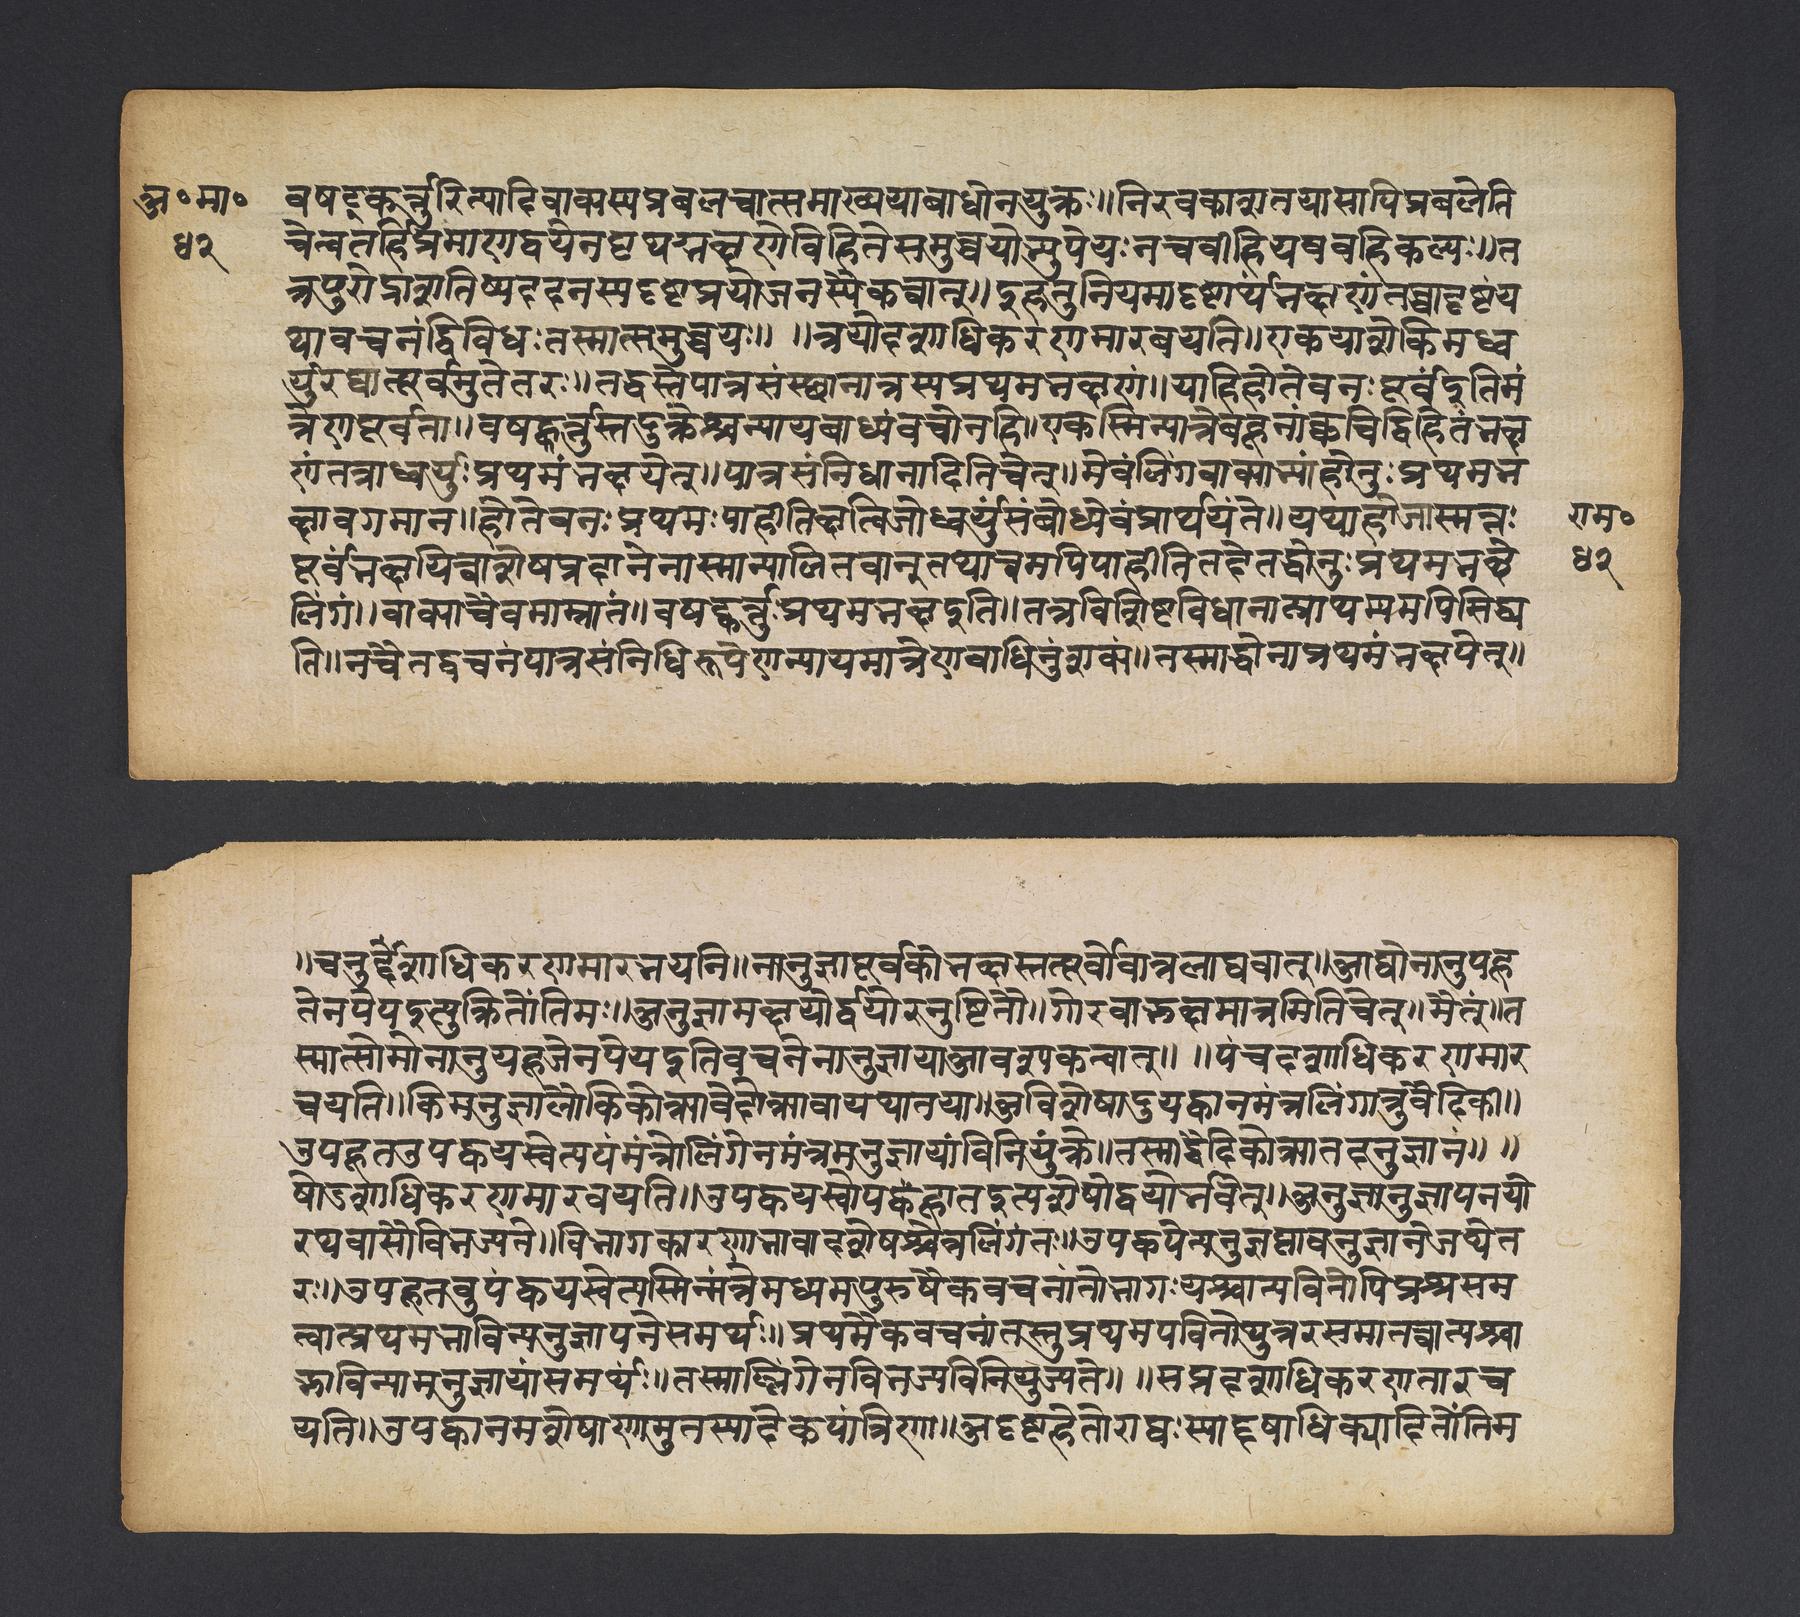 अ॰मा॰
४२
वषट्कर्त्तुरित्यादिवाक्यस्यप्रबलत्वात्समाख्ययाबाधोनयुक्तः॥निरवकाशतयासापिप्रबलेति
चेत्वतर्हिप्रमाणद्वयेनपृथग्भक्षणेविहितेसमुच्चयोस्तुपेयःनचव्रीहियववद्विकल्पः॥त
त्रपुरोडाशनिष्पादनस्यदृष्टप्रयोजनस्यैकत्वात्॥इहतुनियमादृष्टार्थंभक्षणंतच्चादृष्टंय
थावचनंद्विविधःतस्मात्समुच्चयः॥ ॥त्रयोदशाधिकरणमारचयति॥एकपात्रेकिमध्व
र्युरघात्पूर्वमुतेतरः॥तद्धस्तेपात्रसंस्थानात्तस्यप्रथमभक्षणं॥पाहिहोतेवनःपूर्वइतिमं
त्रेणपूर्वता॥वषट्कर्त्तुस्तदुक्तेश्चन्यायबाध्यंवचोनहि॥एकस्मिन्पात्रेबहूनांक्वचिद्विहितंभक्ष
णंतत्राध्वर्युःप्रथमंभक्षयेत्॥पात्रसंनिधानादितिचेत्॥मैवंलिंगवाक्याभ्यांहोतुःप्रथमभ
क्षावगमात्॥होतेवनःप्रथमःपाहीतिऋत्विजोध्वर्युंसंबोध्यैवंप्रार्थयंते॥यथाहोतास्मत्तः
राम॰
४२
पूर्वंभक्षयित्वाशेषप्रदानेनास्मान्पालितवान्तथात्वमपिपाहीतितदेतद्धोतुःप्रथमभक्षे
लिंगं॥वाक्यंचैवमाम्नातं॥वषट्कर्त्तुःप्रथमभक्षइति॥तत्रविशिष्टविधानात्प्राथम्यमपिसिद्ध्य
ति॥नचैतद्वचनंपात्रसंनिधिरूपेणन्यायमात्रेणबाधितुंशक्यं॥तस्माद्धोताप्रथमंभक्षयेत्॥
॥चतुर्द्दशाधिकरणमारचयति॥नानुज्ञापूर्वकोभक्षस्तत्पूर्वोवात्रलाघवात्॥आद्योनानुपहू
तेनपेयइत्युक्तितोंतिमः॥अनुज्ञाभक्षयोर्द्वयोरनुष्टितौ॥गौरवाद्भक्षमात्रमितिचेत्॥मैवं॥त
स्मात्सोमोनानुपहूतेनपेयइतिवचनेनानुज्ञायाआवश्यकत्वात्॥ ॥पंचदशाधिकरणमार
चयति॥किमनुज्ञालौकिकोक्त्यावैदोक्त्यावायथातथा॥अविशेषादुपह्वानमंत्रलिंगात्तुवैदिकी॥
उपहूतउपह्वयस्वेत्ययंमंत्रोलिंगेनमंत्रमनुज्ञायांविनियुंक्ते॥तस्माद्वैदिकोक्त्यातदनुज्ञानं॥ ॥
षोडशाधिकरणमारचयति॥उपह्वयस्वोपहूतइत्यशेषोद्वयोर्भवेत्॥अनुज्ञानुज्ञापनयो
रथवासौविभज्यते॥विभागकारणाभावादशेषश्चेन्नलिंगतः॥उपह्वयेत्यनुज्ञप्तावनुज्ञानेऽथेत
रः॥उपहूतउपह्वयस्वेत्यस्मिन्मंत्रेमध्यमपुरुषैकवचनांतोभागःपश्चात्पठितोपिप्रश्नसम
त्वात्प्रथमभाविन्यनुज्ञापनेसमर्थः॥प्रथमैकवचनांतस्तुप्रथमपठितोप्युत्तरसमानत्वात्पश्चा
द्भाविन्यामनुज्ञायांसमर्थः॥तस्माल्लिंगेनविभज्यविनियुज्यते॥ ॥सप्तदशाधिकरणमारच
यति॥उपह्वानमशेषाणामुतस्यादेकपात्रिणां॥अदृष्टहेतोराद्यःस्याद्दृषाधिक्यादितोंतिम